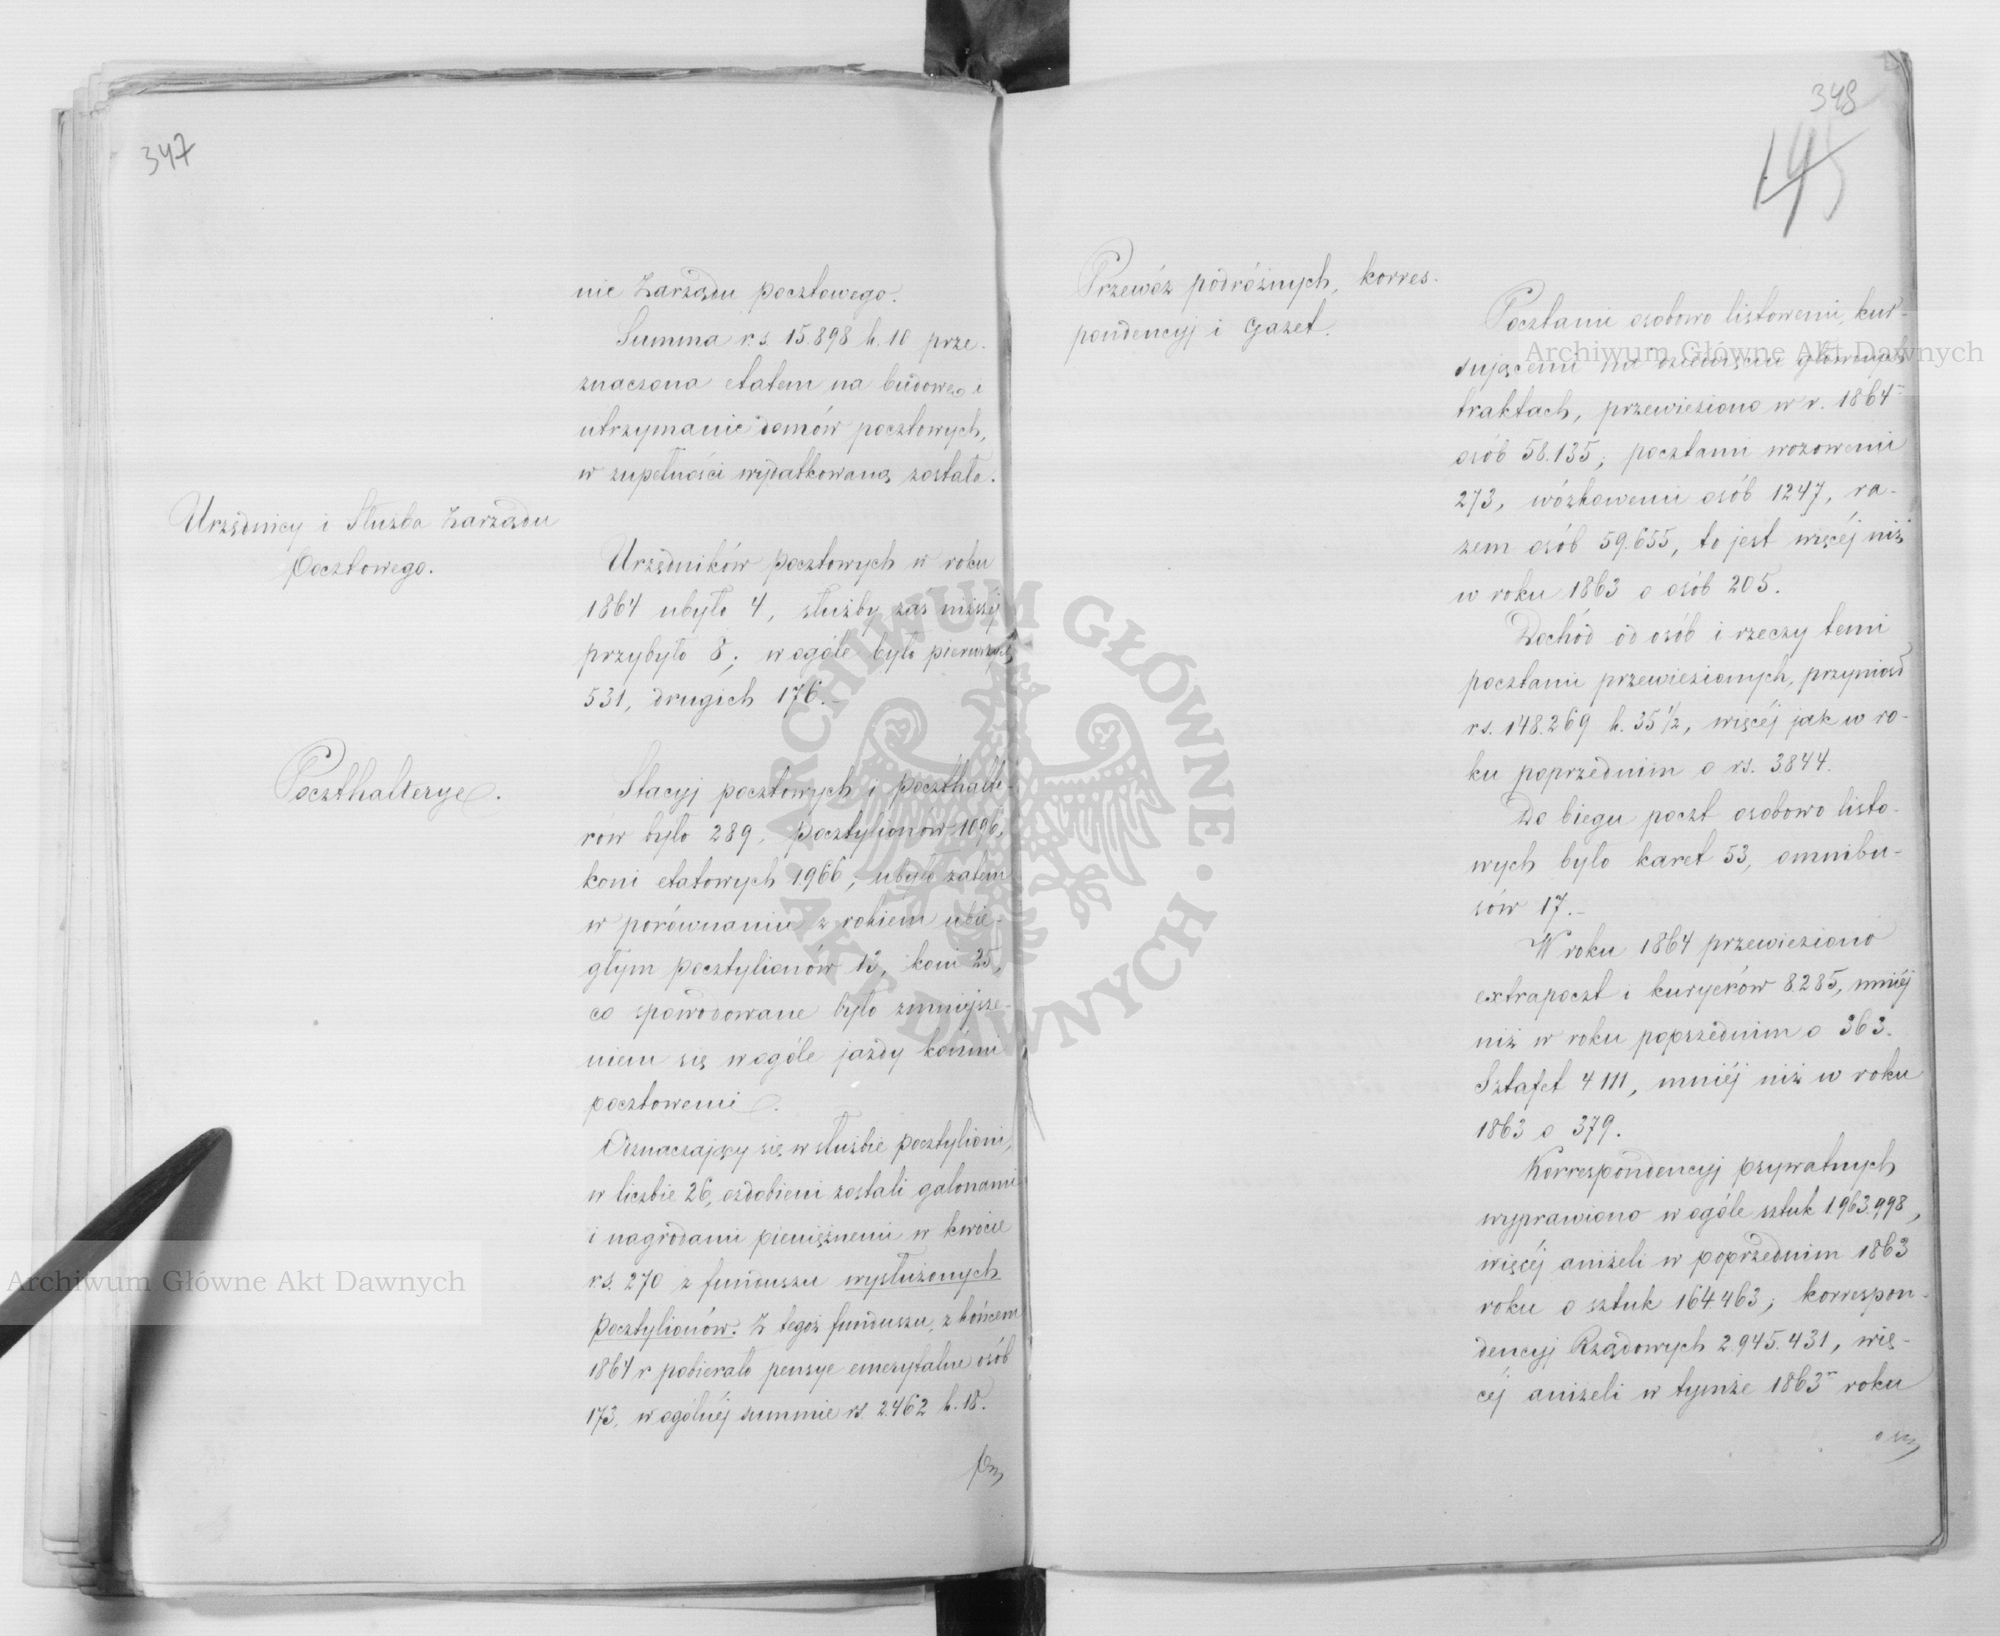 347
nie Zarządu pocztowego.
Summa r.s. 15.898 k. 10 prze-
znaczona etatem na budowę i
utrzymanie domów pocztowych,
w zupełności wydatkowaną została.
Urzędnicy i Służba Zarządu
Pocztowego.
Urzędników pocztowych w roku
1864 ubyło 4, służby zaś niższéj
przybyło 8; w ogóle było pierwszych
531, drugich 176.
Poczthalterye.
Stacyj pocztowych i poczthalte-
rów było 289, pocztylionów 1096,
koni etatowych 1966; ubyło zatem
w porównaniu z rokiem ubie-
głym pocztylionów 13, koni 25,
co spowodowane było zmniejsze-
niem się w ogóle jazdy końmi
pocztowemi.
Odznaczający się w służbie pocztylioni,
w liczbie 26, ozdobieni zostali galonami
i nagrodami pieniężnemi w kwocie
rs. 270 z funduszu wysłużonych
pocztylionów. Z tegoż funduszu, z końcem
1864 r pobierało pensye emerytalne osób
173, w ogólnéj summie rs. 2.462 k. 18.
348
145
Przewóz podróżnych, korres-
pondencyj i Gazet.
Pocztami osobowo listowemi, kur-
sującemi na dziewięciu głównych
traktach, przewieziono w r. 1864
osób 58.135; pocztami wozowemi
273, wózkowemi osób 1247, ra-
zem osób 59.655, to jest więcéj niż
w roku 1863 o osób 205.
Dochód od osób i rzeczy temi
pocztami przewiezionych, przyniósł
rs. 148.269 k. 35 1/2, więcéj jak w ro-
ku poprzednim o rs. 3844.
Do biegu poczt osobowo listo-
wych było karet 53, omnibu-
sów 17.
W roku 1864 przewieziono
extrapoczt i kuryerów 8.285, mniéj
niż w roku poprzednim o 363.
Sztafet 4111, mniéj niż w roku
1863 o 379.
Korrespondencyj prywatnych
wyprawiono w ogóle sztuk 1.963.998,
więcéj aniżeli w poprzednim 1863
roku o sztuk 164463; korrespon-
dencyj Rządowych 2.945.431, wię-
céj aniżeli w tymże 1863 roku
Archiwum Główne Akt Dawnych
Archiwum Główne Akt Dawnych
ARCHIWUM GŁÓWNE AKT DAWNYCH